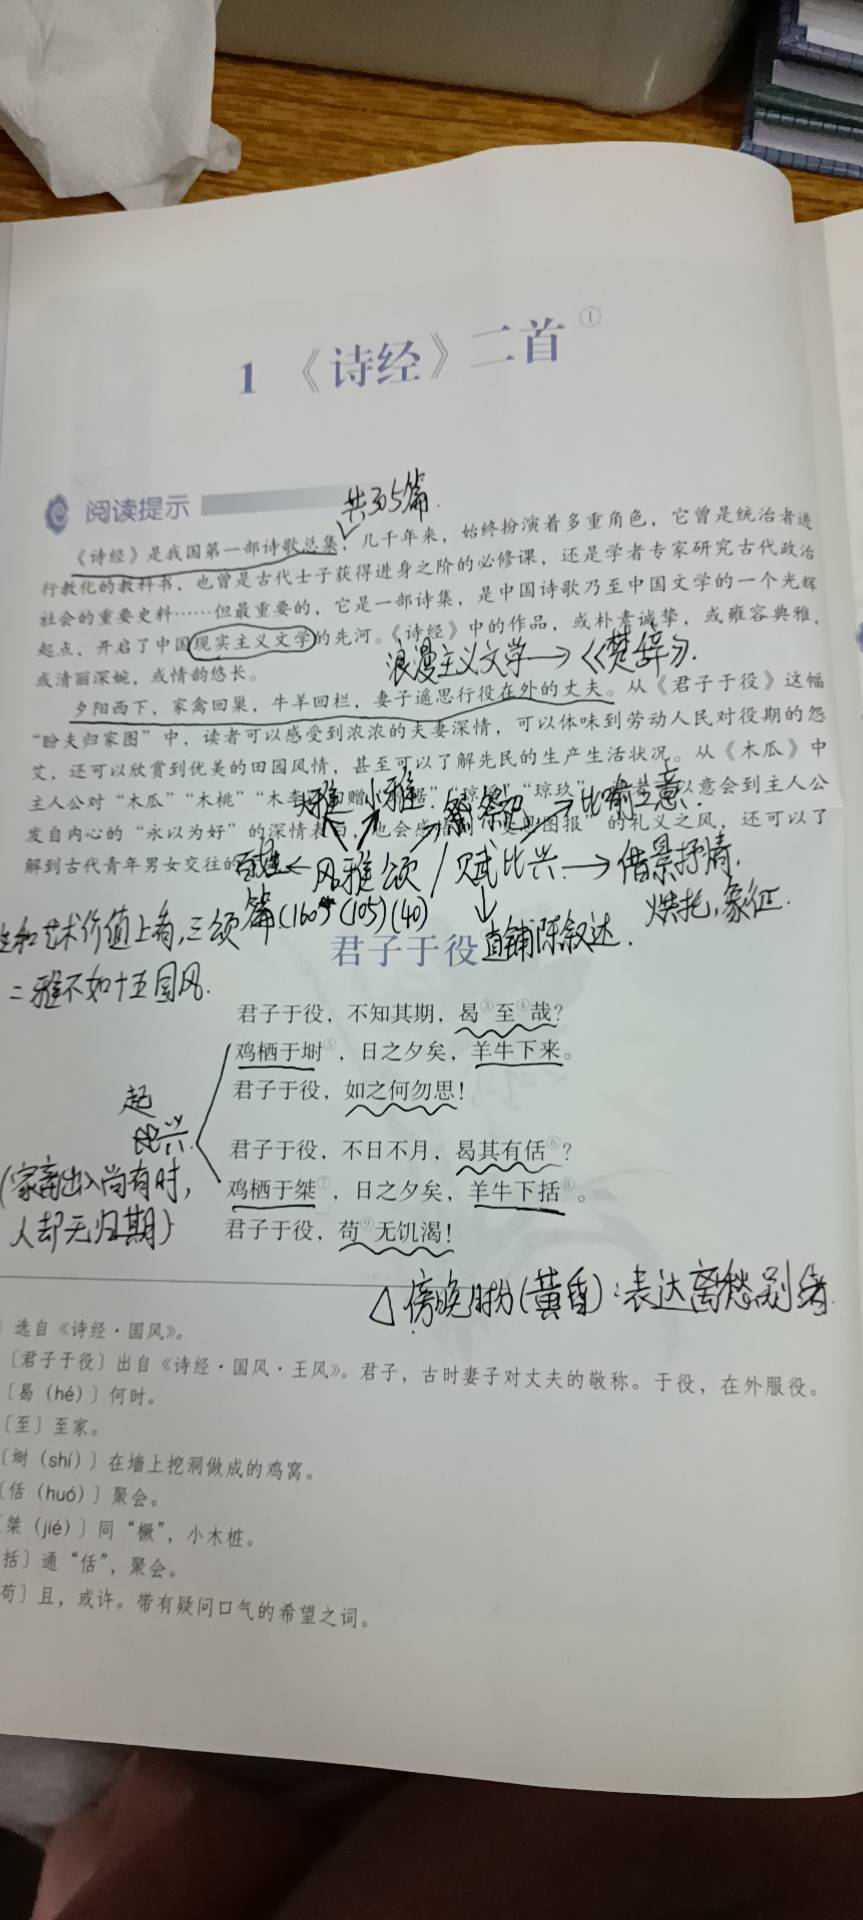 1 《诗经》二首①
阅读提示
共305篇.
《诗经》是我国第一部诗歌总集，几千年来，始终扮演着多重角色，它曾是统治者进
行教化的教科书，也曾是古代士子获得进身之阶的必修课，还是学者专家研究古代政治
社会的重要史料……但最重要的，它是一部诗集，是中国诗歌乃至中国文学的一个光辉
起点，开启了中国现实主义文学的先河。《诗经》中的作品，或朴素诚挚，或雍容典雅，
浪漫主义文学→《楚辞》.
或清丽深婉，或情韵悠长。
夕阳西下，家禽回巢，牛羊回栏，妻子遥思行役在外的丈夫。从《君子于役》这幅
“盼夫归家图”中，读者可以感受到浓浓的夫妻深情，可以体味到劳动人民对役期的怨
艾，还可以欣赏到优美的田园风情，甚至可以了解先民的生产生活状况。从《木瓜》中
主人公对“木瓜”“木桃”“木李”“琼玖”以意会到主人公
大雅 小雅 祭祀 →比喻
发自内心的“永以为好”的深情表白，也会感图报”的礼义之风，还可以了
解到古代青年男女交往的
←风雅颂/赋比兴.→借景抒情.
篇(160)(105)(40) ↓ 烘托,象征.
和艺术价值上看,三颂
直铺陈叙述.
二雅不如十五国风.
君子于役
君子于役，不知其期，曷③至④哉？
鸡栖于埘⑤，日之夕矣，羊牛下来。
君子于役，如之何勿思！
起
比兴
君子于役，不日不月，曷其有佸⑥？
(家畜出入尚有时,
鸡栖于桀⑦，日之夕矣，羊牛下括⑧。
人却无归期)
君子于役，苟⑨无饥渴！
△傍晚时分(黄昏):表达离愁别绪.
选自《诗经·国风》。
〔君子于役〕出自《诗经·国风·王风》。君子，古时妻子对丈夫的敬称。于役，在外服役。
〔曷（hé）〕何时。
〔至〕至家。
〔埘（shí）〕在墙上挖洞做成的鸡窝。
〔佸（huó）〕聚会。
桀（jié）〕同“橛”，小木桩。
括〕通“佸”，聚会。
苟〕且，或许。带有疑问口气的希望之词。